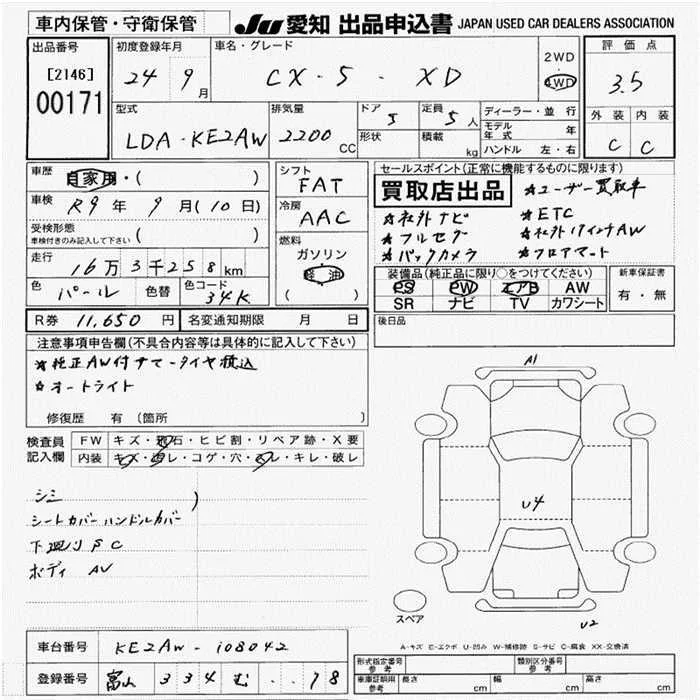 車内保管・守衛保管
JU 愛知 出品申込書 JAPAN USED CAR DEALERS ASSOCIATION
出品番号
[2146]
00171
初度登録年月
24 9月
車名・グレード
CX-5 - XD
2WD
4WD
評価点
3.5
外装 内装
C C
型式
LDA-KE2AW
排気量
2200 CC
ドア 5
形状
定員 5人
積載 kg
ディーラー・並行
モデル年式 年
ハンドル 左・右
車歴
自家用・( )
車検
R9年 9月(10日)
受検形態
車検付きのみ記入して下さい ( )
走行
16万3千258km
色 パール 色替 色コード 34K
シフト
FAT
冷房
AAC
燃料
ガソリン
軽油
( )
セールスポイント(正常に機能するものに限ります)
買取店出品
★ユーザー買取車
★社外ナビ ★ETC
★フルセグ ★社外17インチAW
★バックカメラ ★フロアマート
装備品(純正品に限り○をつけてください)
PS PW エアB AW
SR ナビ TV カワシート
新車保証書
有・無
R券 11,650円 名変通知期限 月 日
後日品
注意事項申告欄(不具合内容等は具体的に記入して下さい)
★純正AW付サマータイヤ積込
★オートライト
修復歴 有 (箇所
検査員記入欄
FW キズ・飛石・ヒビ割・リペア跡・X要
内装 キズ・汚レ・コゲ・穴・スレ・キレ・破レ
シミ )
シートカバー ハンドルカバー
下廻り SC
ボディ AV
A1
U4
スペア
U2
A-キズ E-エクボ U-凹み W-補修跡 S-サビ C-腐食 XX-交換済
車台番号 KE2AW-108042
登録番号 富山 334 む ・・78
形式指定番号 参考
類別区分番号 参考
車庫証明用 参考 長さ cm 幅 cm 高さ cm